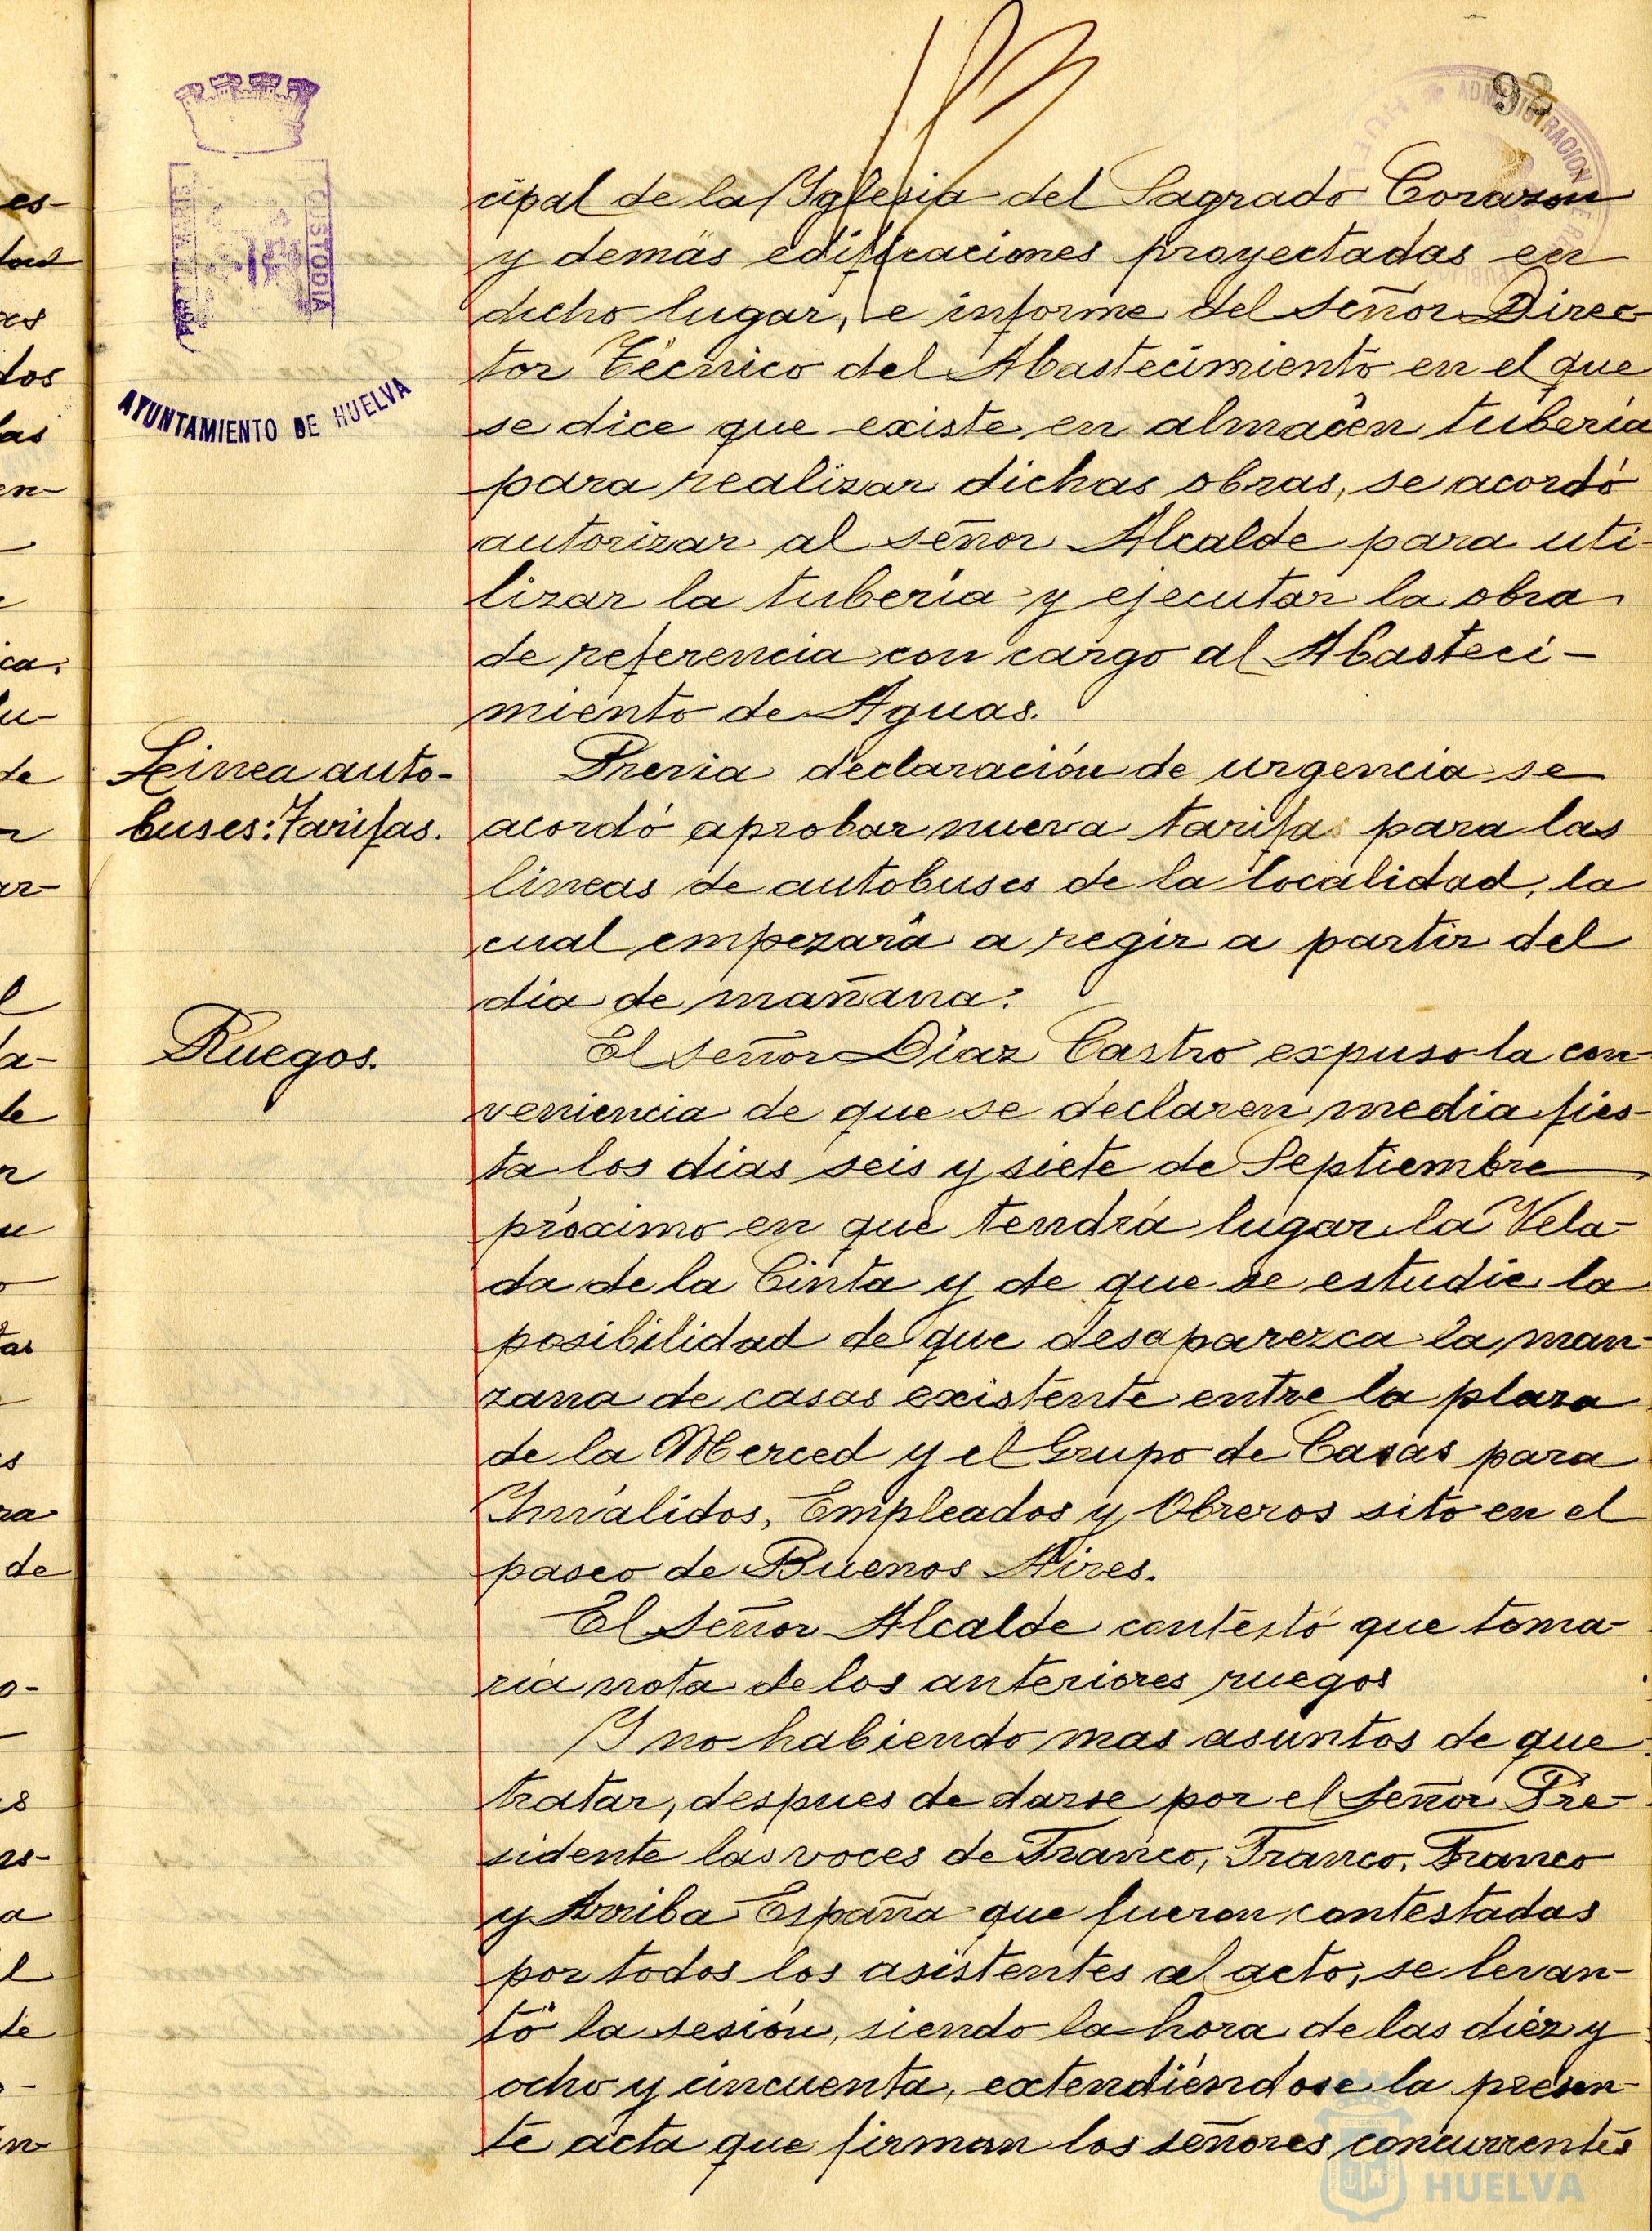 93
ADMINISTRACION
PORTUS MARIS
CUSTODIA
AYUNTAMIENTO DE HUELVA
cipal de la Iglesia del Sagrado Corazon
y demás edificaciones proyectadas en
dicho lugar, e informe del Señor Direc-
tor Técnico del Abastecimiento en el que
se dice que existe en almacén tubería
para realizar dichas obras, se acordó
autorizar al señor Alcalde para uti-
lizar la tubería y ejecutar la obra
de referencia con cargo al Abasteci-
miento de Aguas.
Linea auto-
buses: Tarifas.
Previa declaración de urgencia se
acordó aprobar nueva tarifa para las
lineas de autobuses de la localidad, la
cual empezará a regir a partir del
dia de mañana.
Ruegos.
El Señor Díaz Castro expuso la con-
veniencia de que se declaren media fies-
ta los dias seis y siete de Septiembre
próximo en que tendrá lugar la Vela-
da de la Cinta y de que se estudie la
posibilidad de que desaparezca la man-
zana de casas existente entre la plaza
de la Merced y el Grupo de Casas para
Inválidos, Empleados y Obreros sito en el
paseo de Buenos Aires.
El Señor Alcalde contestó que toma-
ría nota de los anteriores ruegos
Y no habiendo mas asuntos de que
tratar, despues de darse por el Señor Pre-
sidente las voces de Franco, Franco, Franco
y Arriba España que fueron contestadas
por todos los asistentes al acto, se levan-
tó la sesión, siendo la hora de las diez y
ocho y cincuenta, extendiéndose la presen-
te acta que firman los señores concurrentes
Ayuntamiento de
HUELVA